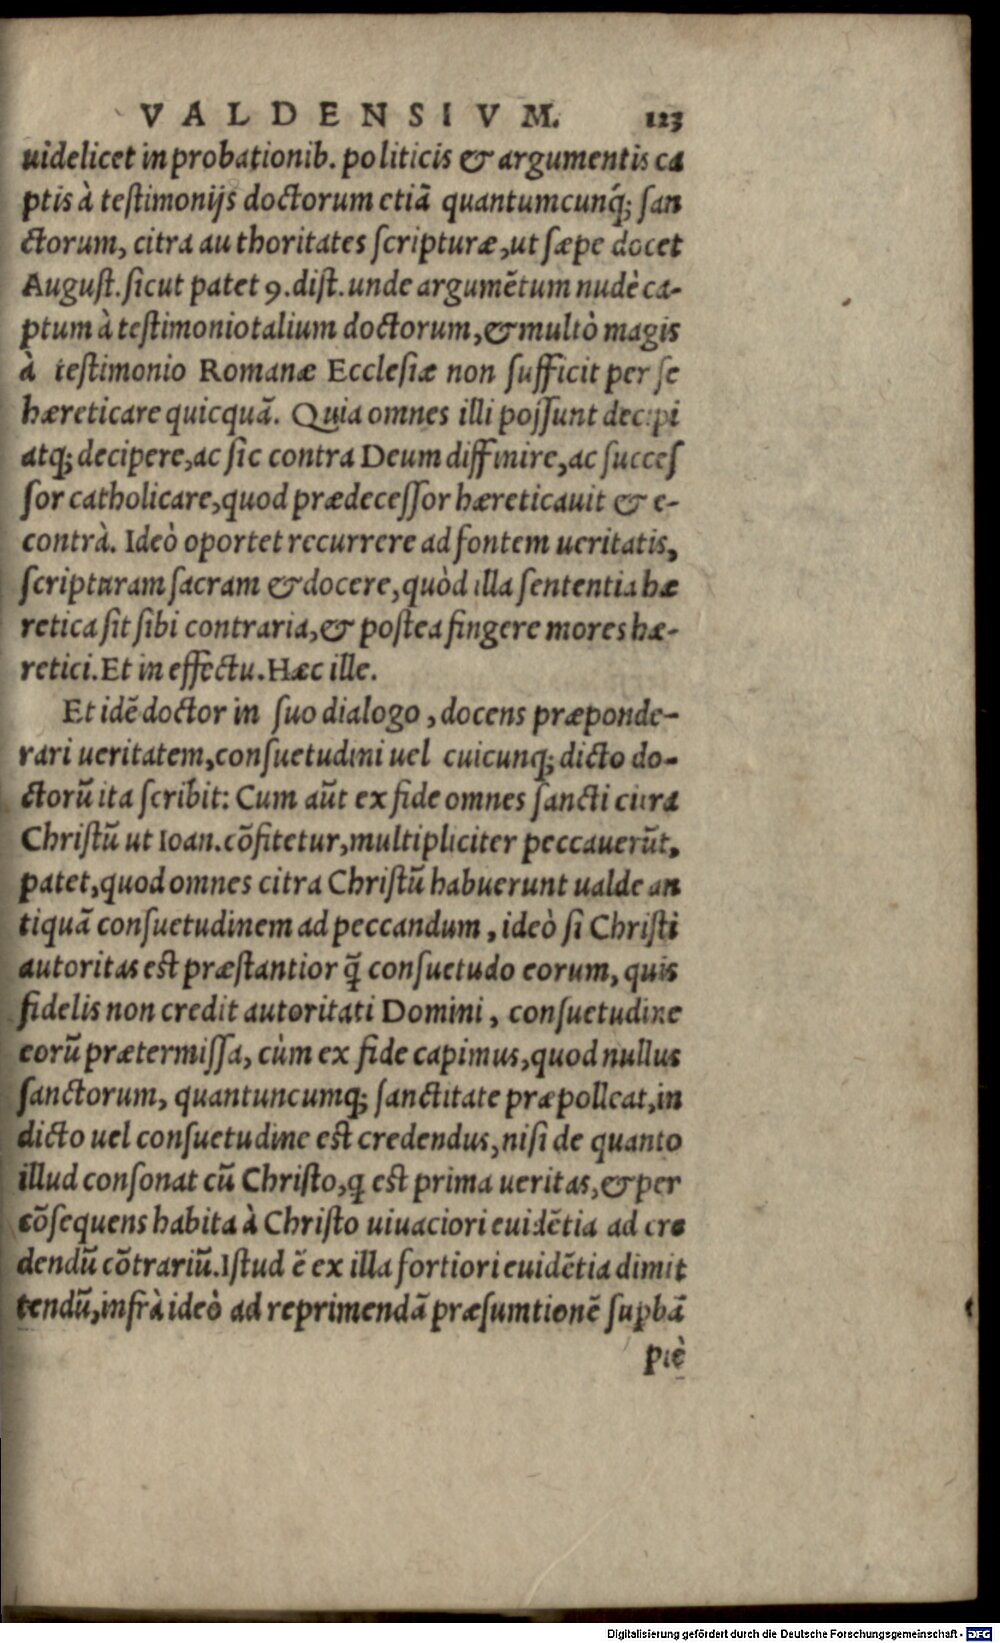 VALDENSIVM. 123
uidelicet in probationib. politicis & argumentis ca
ptis à teſtimonijs doctorum etiã quantumcunq́; ſan
ctorum, citra authoritates ſcripturæ, ut ſæpe docet
Auguſt. ſicut patet 9. diſt. unde argumẽtum nudè ca-
ptum à teſtimonio talium doctorum, & multò magis
à teſtimonio Romanæ Eccleſiæ non ſufficit per ſe
hæreticare quicquã. Quia omnes illi poſſunt decipi
atq; decipere, ac ſic contra Deum diffinire, ac ſucceſ
ſor catholicare, quod prædeceſſor hæreticauit & e-
contrà. Ideò oportet recurrere ad fontem ueritatis,
ſcripturam ſacram & docere, quòd illa ſententia hæ
retica ſit ſibi contraria, & poſtea fingere mores hæ-
retici. Et in effectu. Hæc ille.
Et idẽ doctor in ſuo dialogo, docens præponde-
rari ueritatem, conſuetudini uel cuicunq; dicto do-
ctorũ ita ſcribit: Cum aũt ex fide omnes ſancti citra
Chriſtũ ut Ioan. cõfitetur, multipliciter peccauerũt,
patet, quod omnes citra Chriſtũ habuerunt ualde an
tiquã conſuetudinem ad peccandum, ideò ſi Chriſti
autoritas eſt præſtantior q̃ conſuetudo eorum, quis
fidelis non credit autoritati Domini, conſuetudine
eorũ prætermiſſa, cùm ex fide capimus, quod nullus
ſanctorum, quantuncumq; ſanctitate præpolleat, in
dicto uel conſuetudine eſt credendus, niſi de quanto
illud conſonat cũ Chriſto, q eſt prima ueritas, & per
cõſequens habita à Chriſto uiuaciori euidẽtia ad cre
dendũ cõtrariũ. Iſtud ẽ ex illa fortiori euidẽtia dimit
tendũ, infrà ideò ad reprimendã præſumtionẽ ſuꝑbã
piè
Digitalisierung gefördert durch die Deutsche Forschungsgemeinschaft - DFG